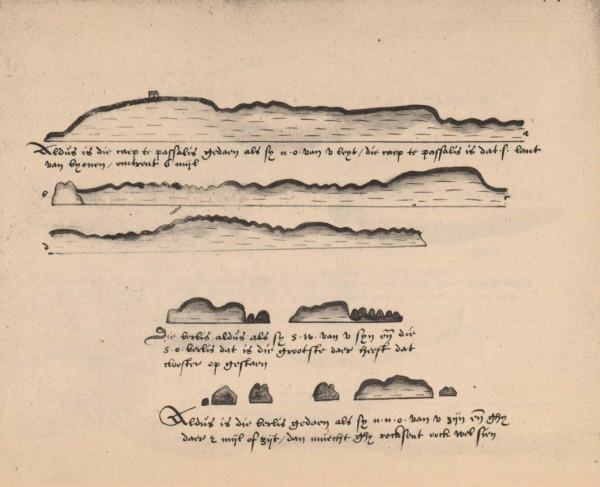 a
Aldus is die carp te passalis gedaen als sy n.o. van v leyt / die carp te passalis is dat s. lant
van byonen / omtrent 6 mijl
b
c
d
Die berlis aldus als sy s.w. van v syn en die
s.o. berlis dat is die grootste daer heeft dat
clooster op gestaen
Aldus is die berlis gedaen als sy n.n.o. van v zijn en ghy
daer 2 mijl of zijt / dan muecht ghy rocksent oock wel sien